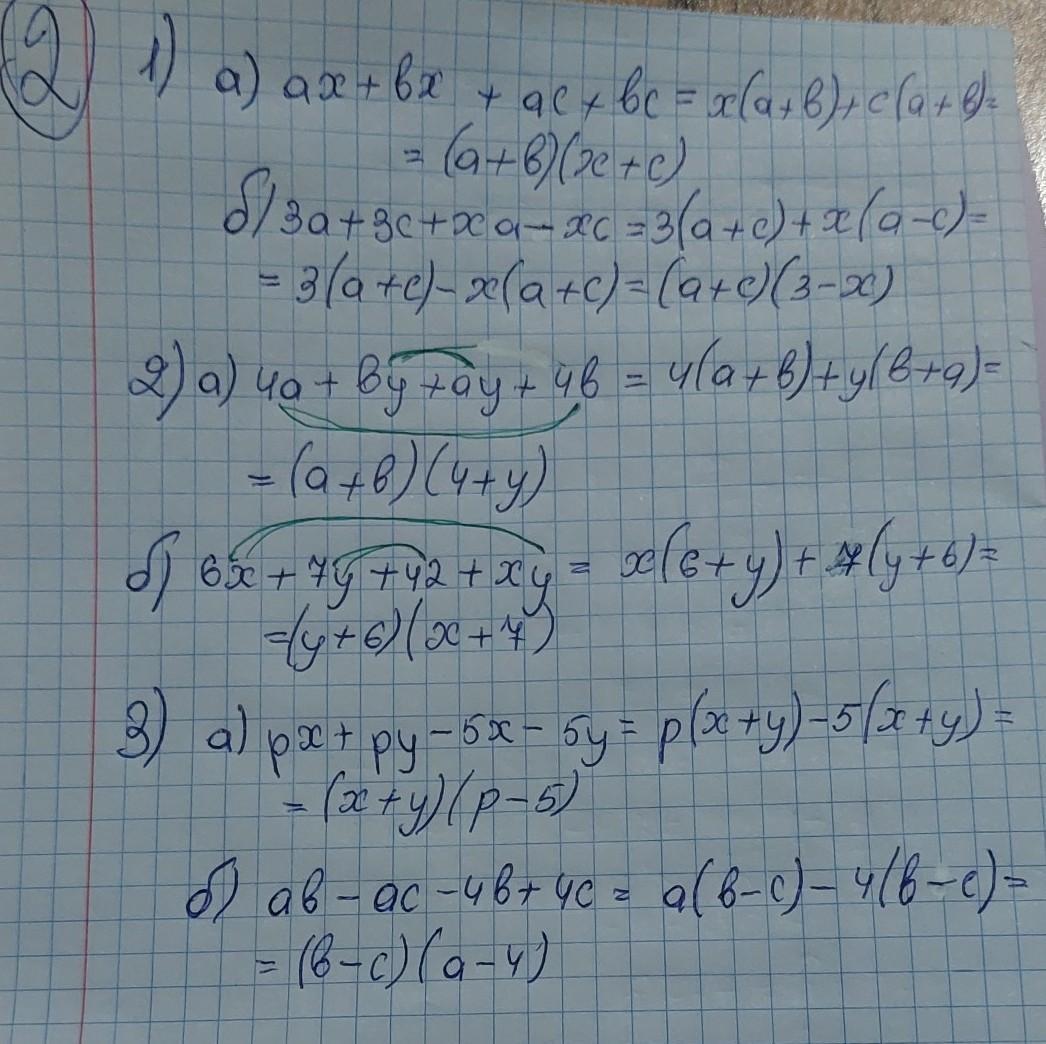 2
1) а) ax + bx + ac + bc = x(a+b) + c(a+b) =
= (a+b)(x+c)
б) 3a + 3c + xa - xc = 3(a+c) + x(a-c) =
= 3(a+c) - x(a+c) = (a+c)(3-x)
2) а) 4a + by + ay + 4b = 4(a+b) + y(b+a) =
= (a+b)(4+y)
б) 6x + 7y + 42 + xy = x(6+y) + 7(y+6) =
= (y+6)(x+7)
3) а) px + py - 5x - 5y = p(x+y) - 5(x+y) =
= (x+y)(p-5)
б) ab - ac - 4b + 4c = a(b-c) - 4(b-c) =
= (b-c)(a-4)